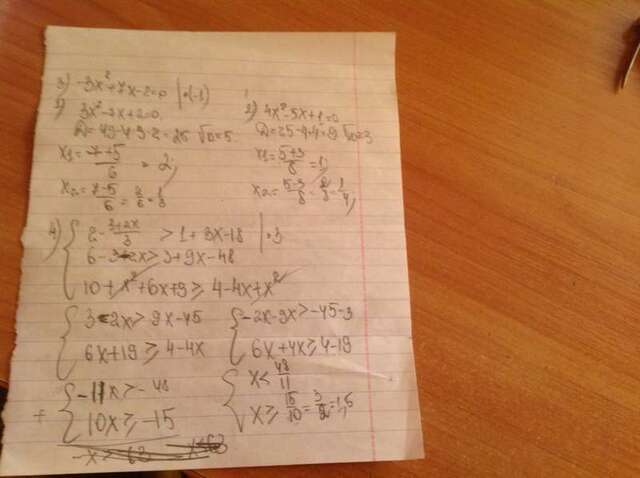 3) -3x²+7x-2=0 |·(-1)
1) 3x²-7x+2=0
D=49-4·3·2=25 √D=5
x1=7+5/6=2;
x2=7-5/6=2/6=1/3
2) 4x²-5x+1=0
D=25-4·4=9 √D=3
x1=5+3/8=1;
x2=5-3/8=2/8=1/4;
4) { 2-3+2x/3 > 1+3x-18 |·3
6-3-2x > 3+9x-48
10+x²+6x+9 ≥ 4-4x+x²
{ 3-2x > 9x-45
6x+19 ≥ 4-4x
{ -2x-9x > -45-3
6x+4x ≥ 4-19
{ -11x > -48
10x ≥ -15
{ x < 48/11
x ≥ 15/10=3/2=1,5